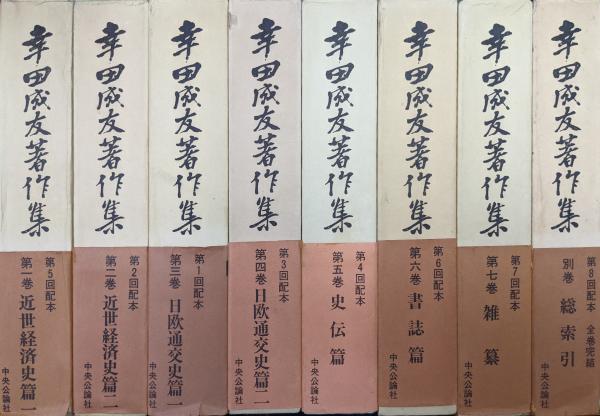 幸田成友著作集
第5回配本
第一巻 近世経済史篇一
中央公論社
幸田成友著作集
第2回配本
第二巻 近世経済史篇二
中央公論社
幸田成友著作集
第1回配本
第三巻 日欧通交史篇一
中央公論社
幸田成友著作集
第3回配本
第四巻 日欧通交史篇二
中央公論社
幸田成友著作集
第4回配本
第五巻 史伝篇
中央公論社
幸田成友著作集
第6回配本
第六巻 書誌篇
中央公論社
幸田成友著作集
第7回配本
第七巻 雑纂
中央公論社
幸田成友著作集
第8回配本 全巻完結
別巻 総索引
中央公論社